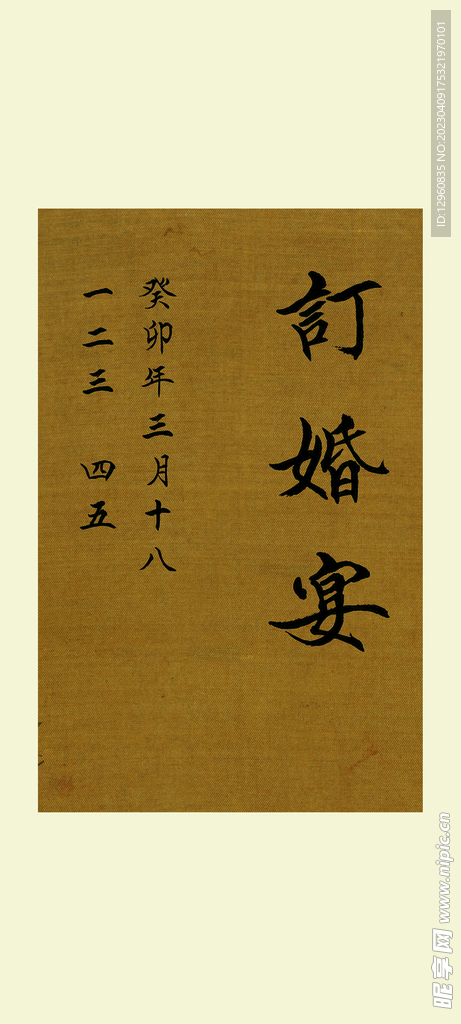 訂婚宴
癸卯年三月十八
一二三 四五
ID:12960835 NO:20230409175321970101
昵享网 www.nipic.cn